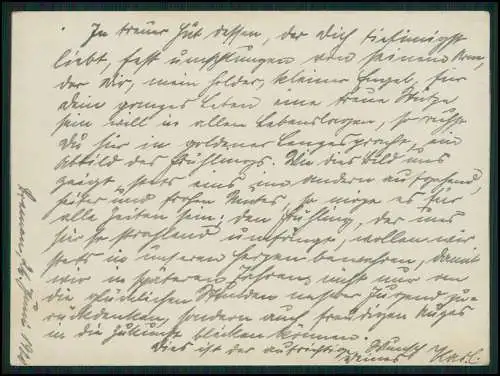 In treuer Hut dessen, der Dich tiefinnigst
liebt, fest umschlungen von seinem Arm,
der Dir, mein holder, kleiner Engel, für
Dein ganzes Leben eine treue Stütze
sein will in allen Lebenslagen, so ruhst
Du hier in goldener Lenzespracht, ein
Abbild des Frühlings. Wie dies Bild uns
zeigt, stets eins im andern aufgehend,
heiter und frohen Mutes, so möge es für
alle Zeiten sein; den Frühling, der uns
hier so strahlend umfängt, wollen wir
stets in unseren Herzen bewahren, damit
wir in späteren Jahren nicht nur an
die glücklichen Stunden naher Jugend zu-
rückdenken, sondern auch freudigen Auges
in die Zukunft blicken können.
Dies ist der aufrichtige Wunsch
Deines Karl.
Juni